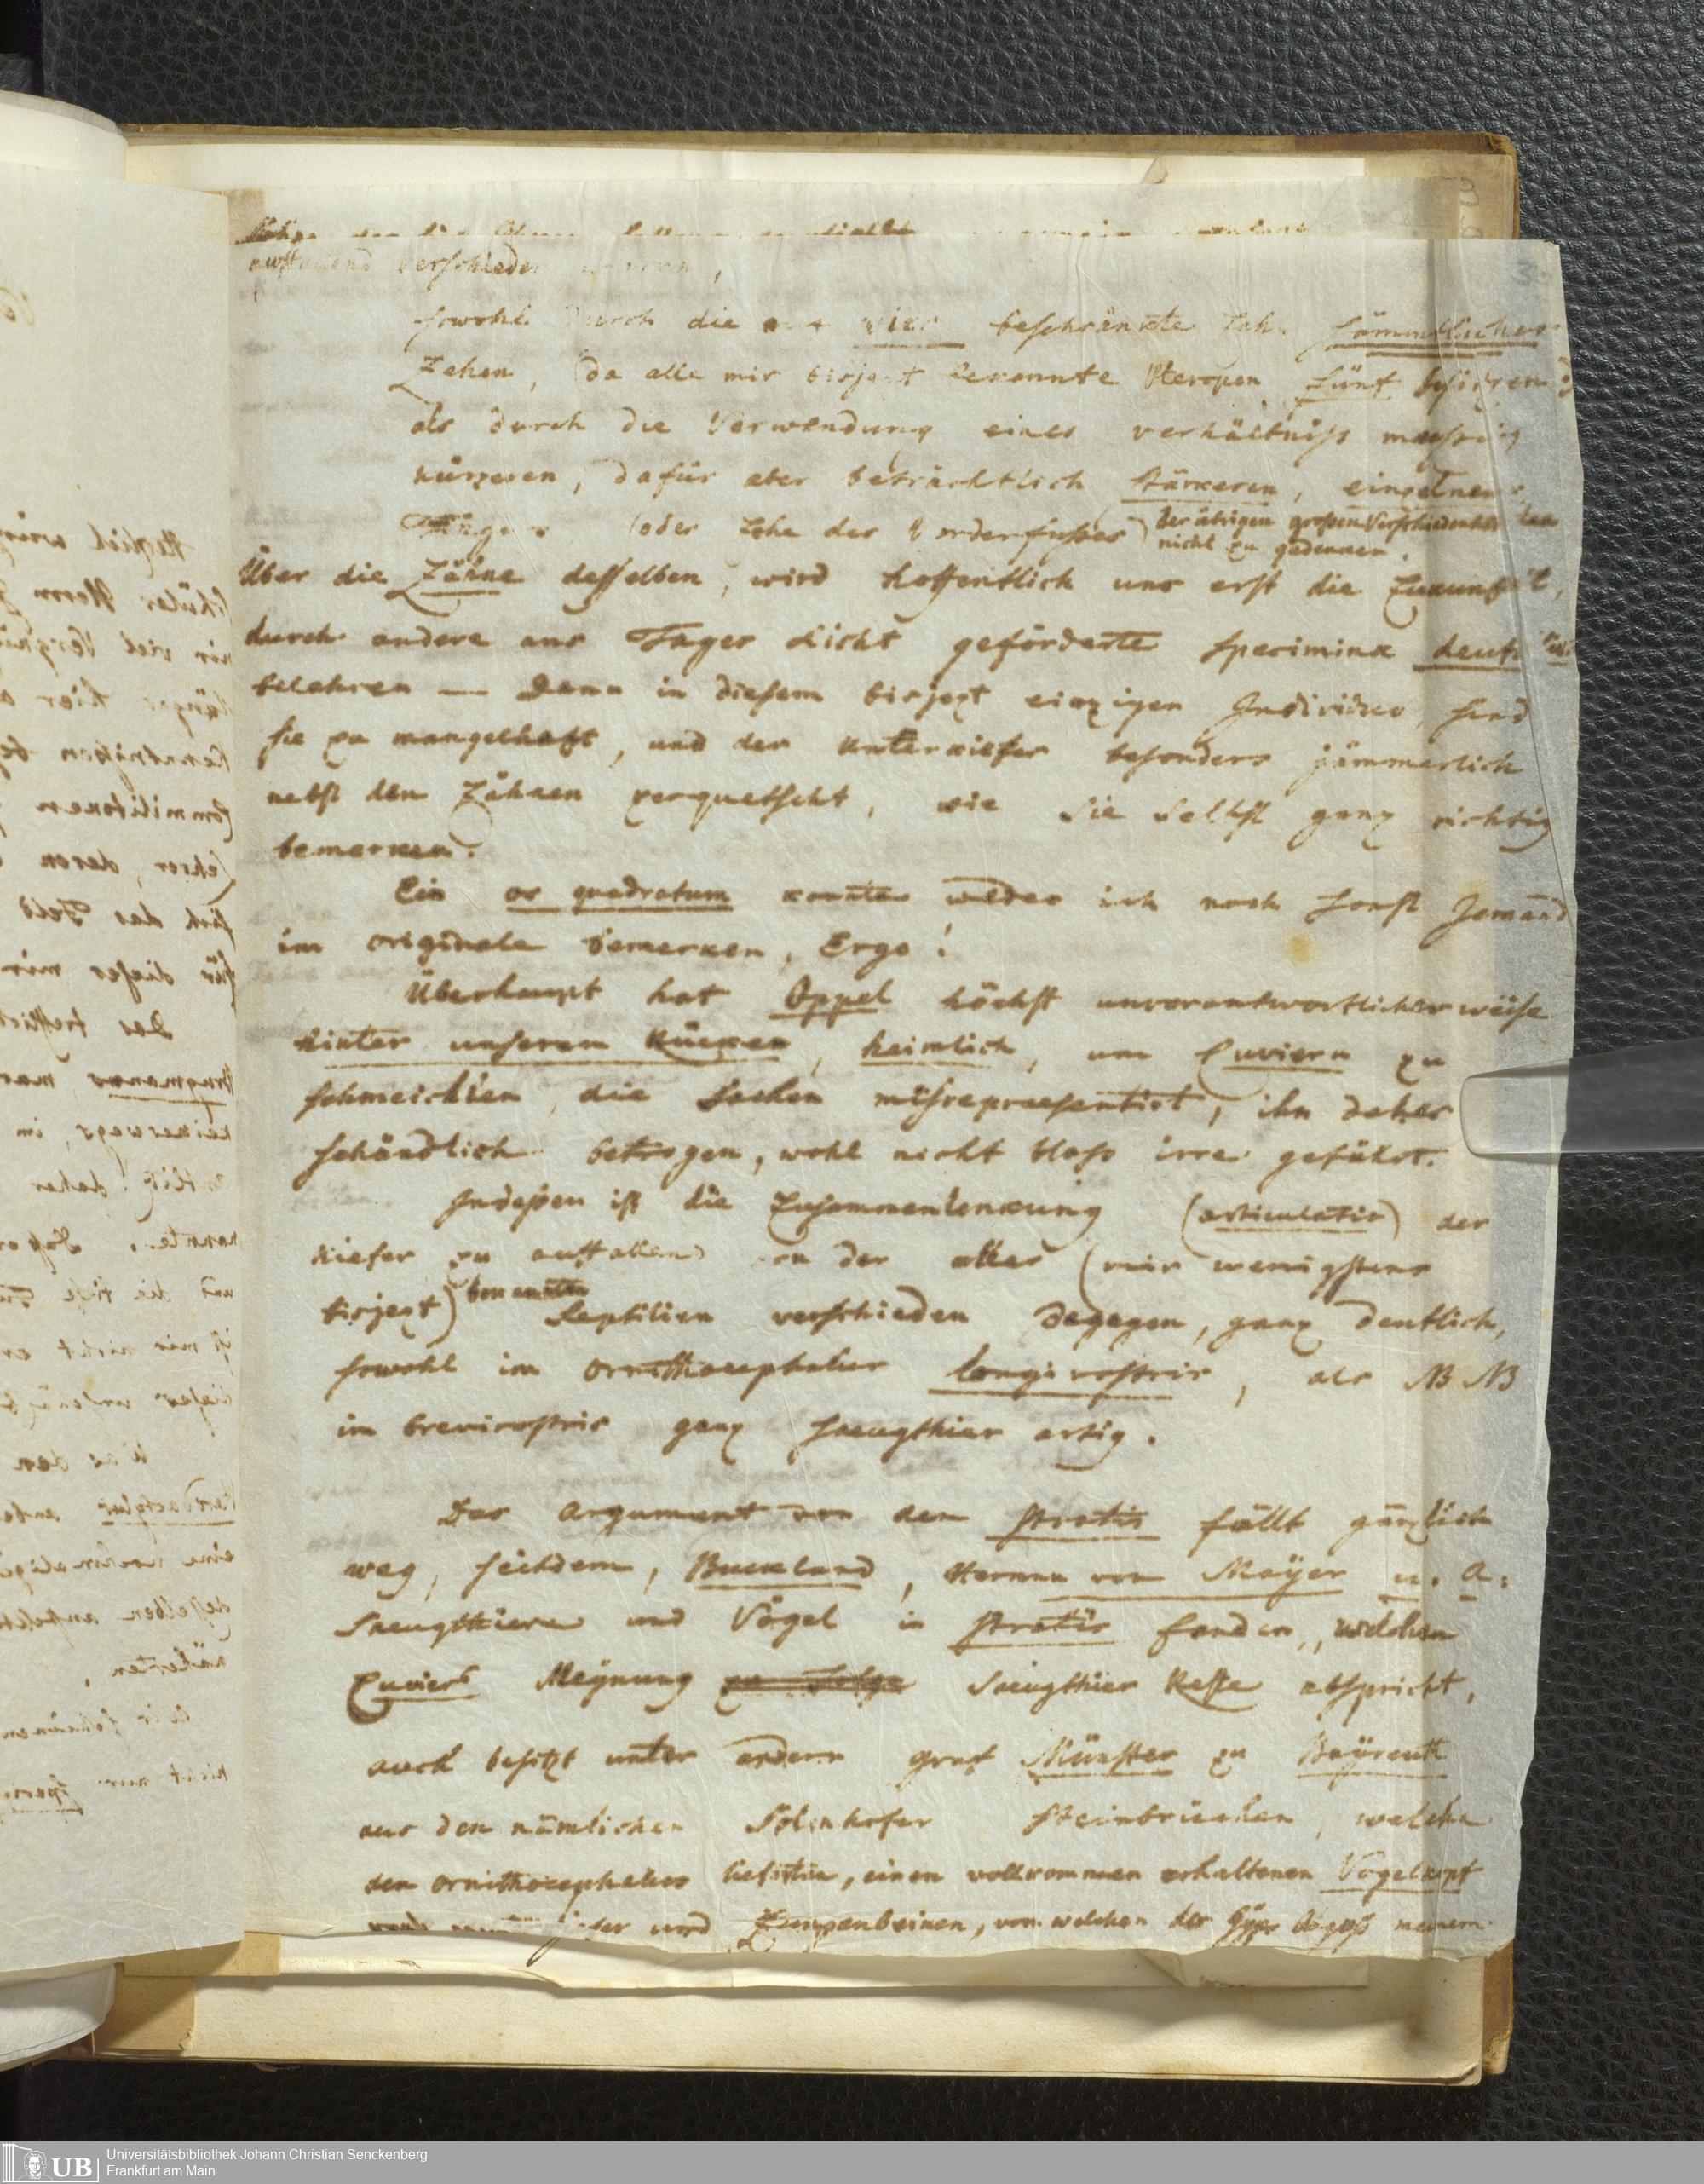 auffallend verschieden
sowohl durch die nur vier beschränkte Zahl sämmtlicher
Zehen, (da alle mir bisjezt bekannte Pteropen Fünf besitzen)
als durch die Verwendung eines verhältniss maessig
kürzeren, dafür aber beträchtlich stärkeren, einzelnen
Fingers (oder Zehe des Vorderfusses) der übrigen grossen Verschiedenheiten
nicht zu gedenken.
Über die Zähne desselben, wird hoffentlich uns erst die Zukunft,
durch andere ans Tages Licht geförderte specimina
belehren — Denn in diesem bisjezt einzigen Individuo, sind
sie zu mangelhaft, und der Unterkiefer besonders jämmerlich
nebst den Zähnen zerquetscht, wie Sie selbst ganz richtig
bemerken.
Ein os quadratum konnte weder ich noch sonst Jemand
im originale bemerken, Ergo!
Überhaupt hat Oppel höchst unverantwortlicher weise
hinter unserem Rücken, heimlich, um Cuviern zu
schmeichlen, die Sachen misrepraesentirt, ihn daher
schändlich betrogen, wohl nicht bloss irre geführt.
Indessen ist die Zusammenlenkung (articulatio) der
Kiefer zu auffallend von der aller (mir wenigstens
bisjezt) bekannten Reptilien verschieden dagegen, ganz deutlich,
sowohl im ornithocephalus longirostris, als NB NB
im brevirostris ganz saeugthier artig.
Das Argument von den stratis fällt gänzlich
weg, seitdem, Buckland, Herman von Mayer u. a.
Saeugthiere und Vögel in stratis fanden, welchen
Cuviers Meynung zu Folge Saeugthier Reste abspricht,
auch besitzt unter andern graf Münster zu Bayreuth
aus den nämlichen Solenhofer Steinbrüchen, welche
den ornithocephalus lieferten, einen vollkommen erhaltenen Vogelkopf
und Zungenbeinen, von welchen der Gyps Abguss meinem
UB
Universitätsbibliothek Johann Christian Senckenberg
Frankfurt am Main